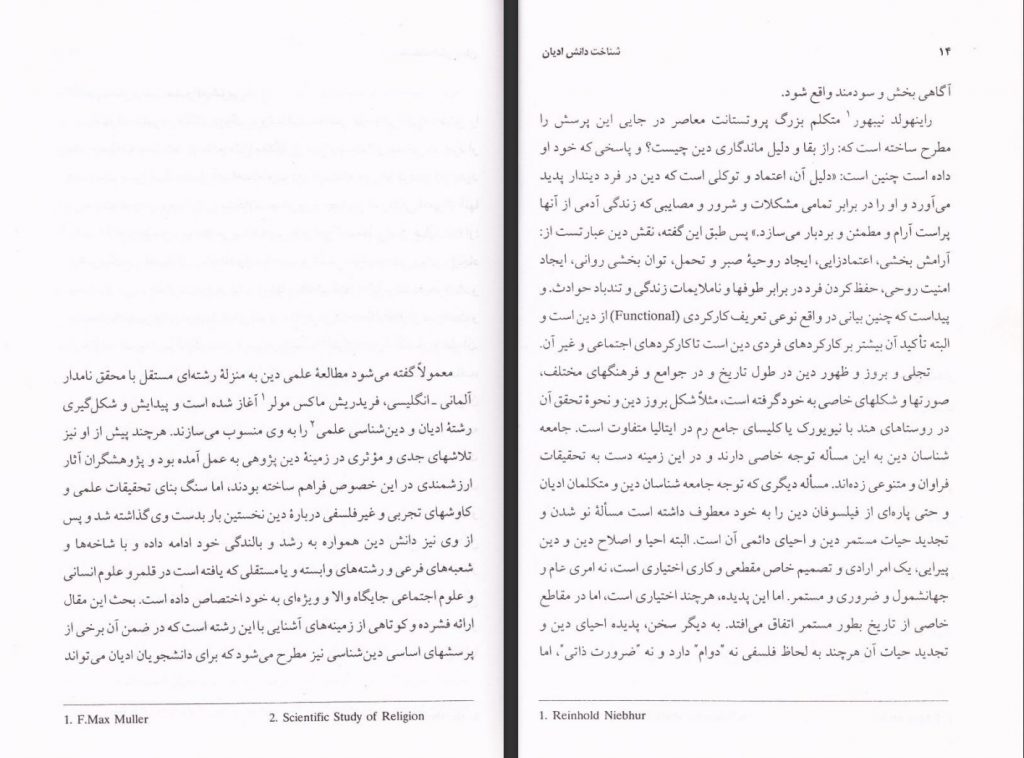 معمولاً گفته می‌شود مطالعهٔ علمی دین به منزلهٔ رشته‌ای مستقل با محقق نامدار
آلمانی ـ انگلیسی، فریدریش ماکس مولر۱ آغاز شده است و پیدایش و شکل‌گیری
رشتهٔ ادیان و دین‌شناسی علمی۲ را به وی منسوب می‌سازند. هرچند پیش از او نیز
تلاشهای جدی و مؤثری در زمینهٔ دین پژوهی به عمل آمده بود و پژوهشگران آثار
ارزشمندی در این خصوص فراهم ساخته بودند، اما سنگ بنای تحقیقات علمی و
کاوشهای تجربی و غیرفلسفی دربارهٔ دین نخستین بار بدست وی گذاشته شد و پس
از وی نیز دانش دین همواره به رشد و بالندگی خود ادامه داده و با شاخه‌ها و
شعبه‌های فرعی و رشته‌های وابسته و یا مستقلی که یافته است در قلمرو علوم انسانی
و علوم اجتماعی جایگاه والا و ویژه‌ای به خود اختصاص داده است. بحث این مقال
ارائه فشرده و کوتاهی از زمینه‌های آشنایی با این رشته است که در ضمن آن برخی از
پرسشهای اساسی دین‌شناسی نیز مطرح می‌شود که برای دانشجویان ادیان می‌تواند
1. F.Max Muller 2. Scientific Study of Religion
۱۴ شناخت دانش ادیان
آگاهی بخش و سودمند واقع شود.
راینهولد نیبهور۱ متکلم بزرگ پروتستانت معاصر در جایی این پرسش را
مطرح ساخته است که: راز بقا و دلیل ماندگاری دین چیست؟ و پاسخی که خود او
داده است چنین است: «دلیل آن، اعتماد و توکلی است که دین در فرد دیندار پدید
می‌آورد و او را در برابر تمامی مشکلات و شرور و مصایبی که زندگی آدمی از آنها
پراست آرام و مطمئن و بردبار می‌سازد.» پس طبق این گفته، نقش دین عبارتست از:
آرامش بخشی، اعتمادزایی، ایجاد روحیهٔ صبر و تحمل، توان بخشی روانی، ایجاد
امنیت روحی، حفظ کردن فرد در برابر طوفها و ناملایمات زندگی و تندباد حوادث. و
پیداست که چنین بیانی در واقع نوعی تعریف کارکردی (Functional) از دین است و
البته تأکید آن بیشتر بر کارکردهای فردی دین است تا کارکردهای اجتماعی و غیر آن.
تجلی و بروز و ظهور دین در طول تاریخ و در جوامع و فرهنگهای مختلف،
صورتها و شکلهای خاصی به خود گرفته است، مثلاً شکل بروز دین و نحوهٔ تحقق آن
در روستاهای هند با نیویورک یا کلیسای جامع رم در ایتالیا متفاوت است. جامعه
شناسان دین به این مسأله توجه خاصی دارند و در این زمینه دست به تحقیقات
فراوان و متنوعی زده‌اند. مسأله دیگری که توجه جامعه شناسان دین و متکلمان ادیان
و حتی پاره‌ای از فیلسوفان دین را به خود معطوف داشته است مسألهٔ نو شدن و
تجدید حیات مستمر دین و احیای دائمی آن است. البته احیا و اصلاح دین و دین
پیرایی، یک امر ارادی و تصمیم خاص مقطعی و کاری اختیاری است، نه امری عام و
جهانشمول و ضروری و مستمر. اما این پدیده، هرچند اختیاری است، اما در مقاطع
خاصی از تاریخ بطور مستمر اتفاق می‌افتد. به دیگر سخن، پدیده احیای دین و
تجدید حیات آن هرچند به لحاظ فلسفی نه "دوام" دارد و نه "ضرورت ذاتی"، اما
1. Reinhold Niebhur